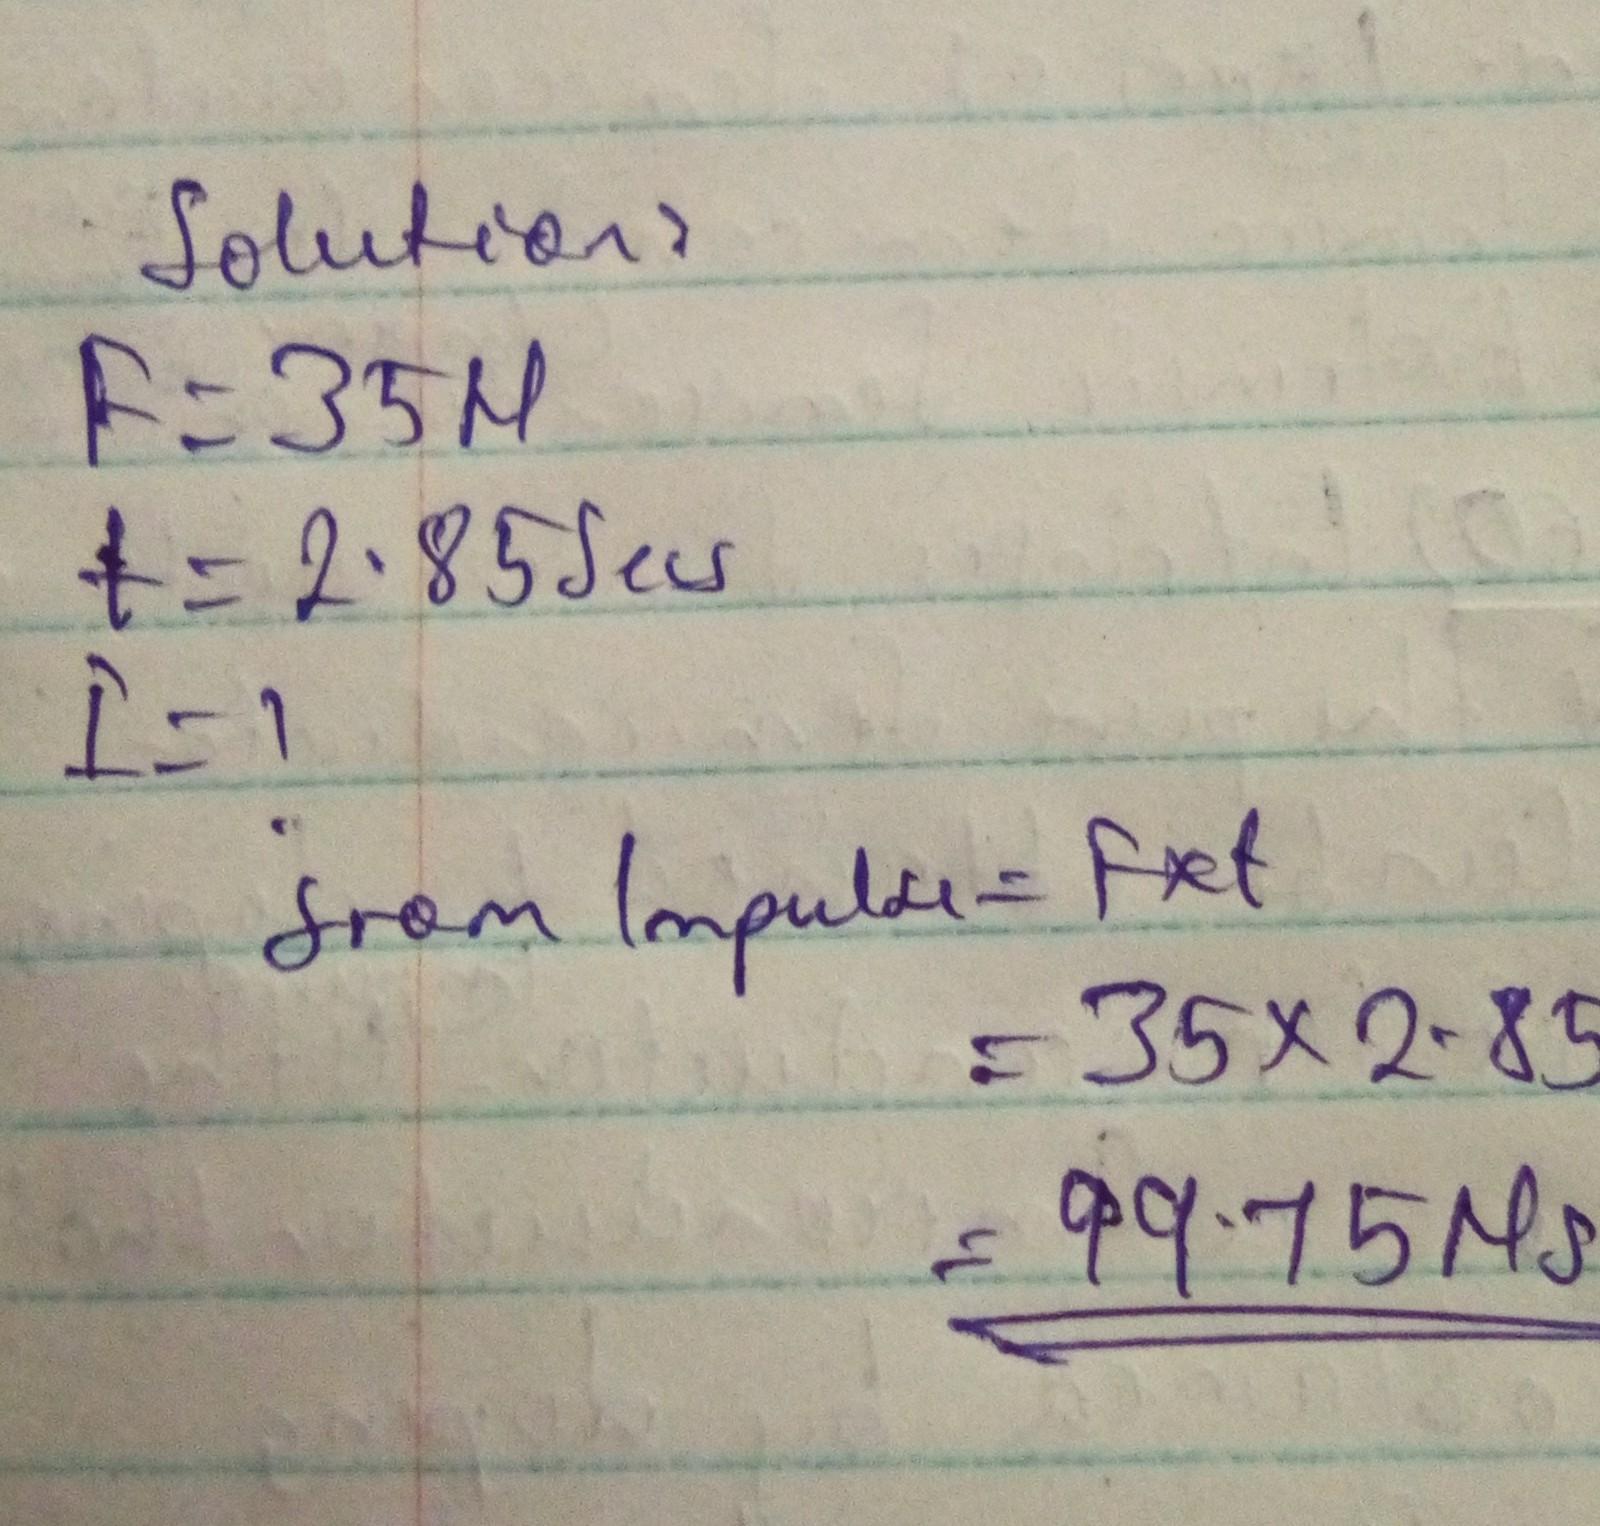 Solution:
F = 35N
t = 2.85Secs
I = ?
from Impulse = Fxt
= 35 x 2.85
= 99.75Ns